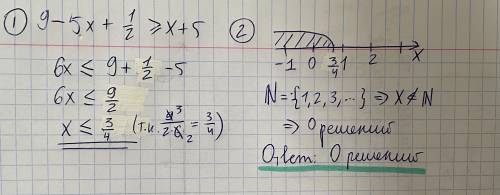 ① 9 - 5x + 1/2 ≥ x + 5
6x ≤ 9 + 1/2 - 5
6x ≤ 9/2
x ≤ 3/4 (т.к. 9³/2·6₂ = 3/4)
②
-1 0 3/4 1 2 x
N = {1, 2, 3, ...} ⇒ x ∉ N
⇒ 0 решений
Ответ: 0 решений